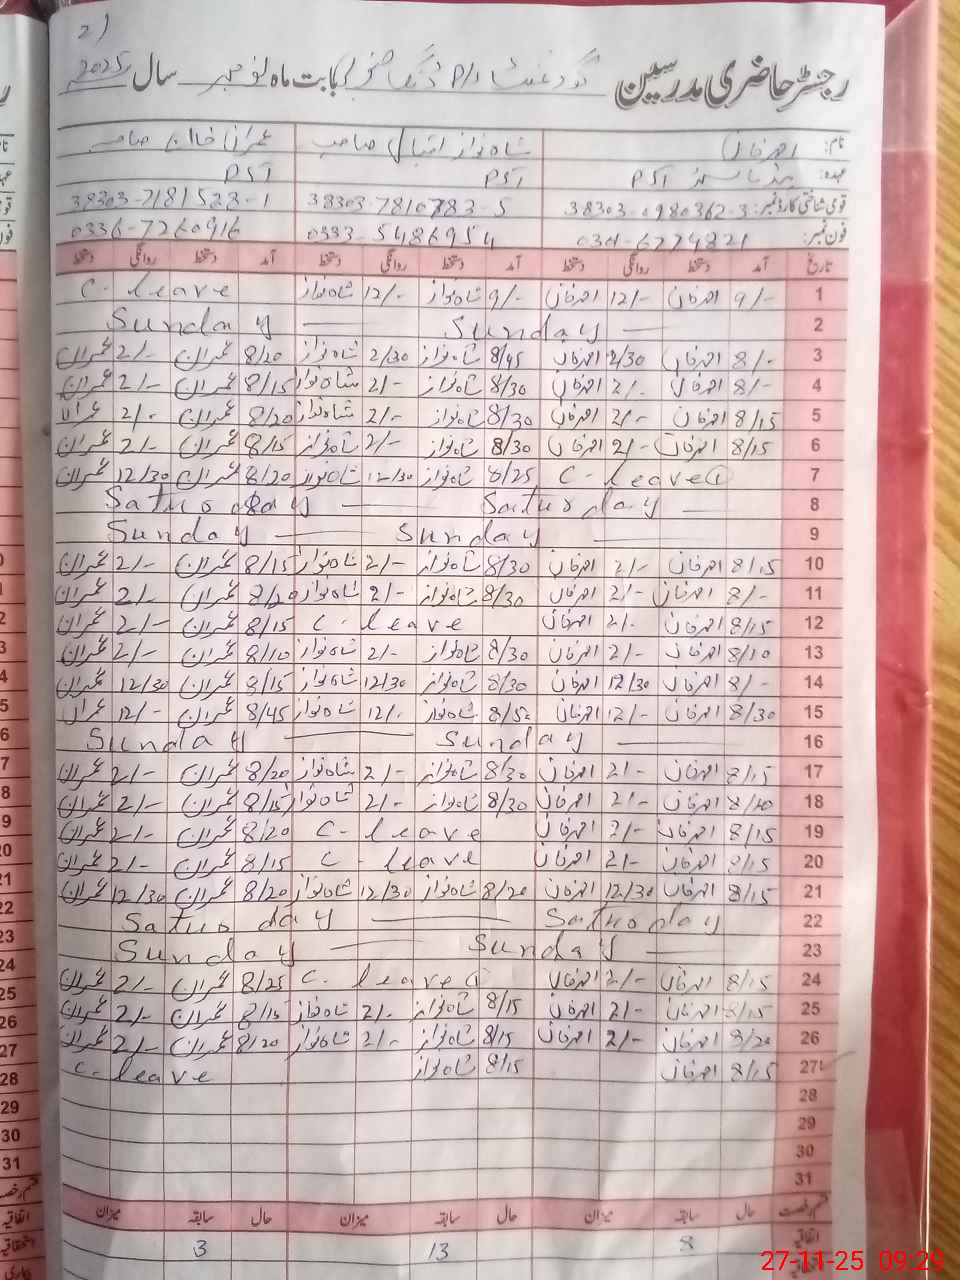 2)
رجسٹر حاضری مدرسین گورنمنٹ P/S بابت ماہ نومبر سال 2025
نام: احمد خان شاہ نواز اقبال صاحب عمران خان صاحب
عہدہ: ہیڈ ماسٹر PST PST PST
قومی شناختی کارڈ نمبر: 38303-0980362-3 38303-7810783-5 38303-7181523-1
فون نمبر: 0333-5486954 0336-7260916
تاریخ آمد دستخط روانگی دستخط آمد دستخط روانگی دستخط آمد دستخط روانگی دستخط
1 9/- احمد خان 12/- احمد خان 9/- شاہ نواز 12/- شاہ نواز C. leave
2 Sunday — Sunday —
3 8/- احمد خان 2/30 احمد خان 8/45 شاہ نواز 2/30 شاہ نواز 8/20 عمران 2/- عمران
4 8/- احمد خان 2/- احمد خان 8/30 شاہ نواز 2/- شاہ نواز 8/15 عمران 2/- عمران
5 8/15 احمد خان 2/- احمد خان 8/30 شاہ نواز 2/- شاہ نواز 8/20 عمران 2/- عمران
6 8/15 احمد خان 2/- احمد خان 8/30 شاہ نواز 2/- شاہ نواز 8/15 عمران 2/- عمران
7 C- leave ① 8/25 شاہ نواز 12/30 شاہ نواز 8/20 عمران 12/30 عمران
8 Saturday — Saturday —
9 Sunday — Sunday —
10 8/15 احمد خان 2/- احمد خان 8/30 شاہ نواز 2/- شاہ نواز 8/15 عمران 2/- عمران
11 8/- احمد خان 2/- احمد خان 8/30 شاہ نواز 2/- شاہ نواز 8/20 عمران 2/- عمران
12 8/15 احمد خان 2/- احمد خان C. leave 8/15 عمران 2/- عمران
13 8/10 احمد خان 2/- احمد خان 8/30 شاہ نواز 2/- شاہ نواز 8/10 عمران 2/- عمران
14 8/- احمد خان 12/30 احمد خان 8/30 شاہ نواز 12/30 شاہ نواز 8/15 عمران 12/30 عمران
15 8/30 احمد خان 12/- احمد خان 8/50 شاہ نواز 12/- شاہ نواز 8/45 عمران 12/- عمران
16 Sunday — Sunday —
17 8/15 احمد خان 2/- احمد خان 8/30 شاہ نواز 2/- شاہ نواز 8/20 عمران 2/- عمران
18 احمد خان 2/- احمد خان 8/30 شاہ نواز 2/- شاہ نواز 8/15 عمران 2/- عمران
19 8/15 احمد خان 2/- احمد خان C- leave 8/20 عمران 2/- عمران
20 8/15 احمد خان 2/- احمد خان C- leave 8/15 عمران 2/- عمران
21 8/15 احمد خان 12/30 احمد خان 8/20 شاہ نواز 12/30 شاہ نواز 8/20 عمران 12/30 عمران
22 Saturday — Saturday
23 Sunday — Sunday —
24 8/15 احمد خان 2/- احمد خان C. leave 8/25 عمران 2/- عمران
25 8/15 احمد خان 2/- احمد خان 8/15 شاہ نواز 2/- شاہ نواز 8/15 عمران 2/- عمران
26 8/20 احمد خان 2/- احمد خان 8/15 شاہ نواز 2/- شاہ نواز 8/20 عمران 2/- عمران
27 8/15 احمد خان 8/15 شاہ نواز C- leave
28
29
30
31
قسم رخصت حال سابقہ میزان حال سابقہ میزان حال سابقہ میزان
اتفاقیہ 8 13 3
27-11-25 09:29